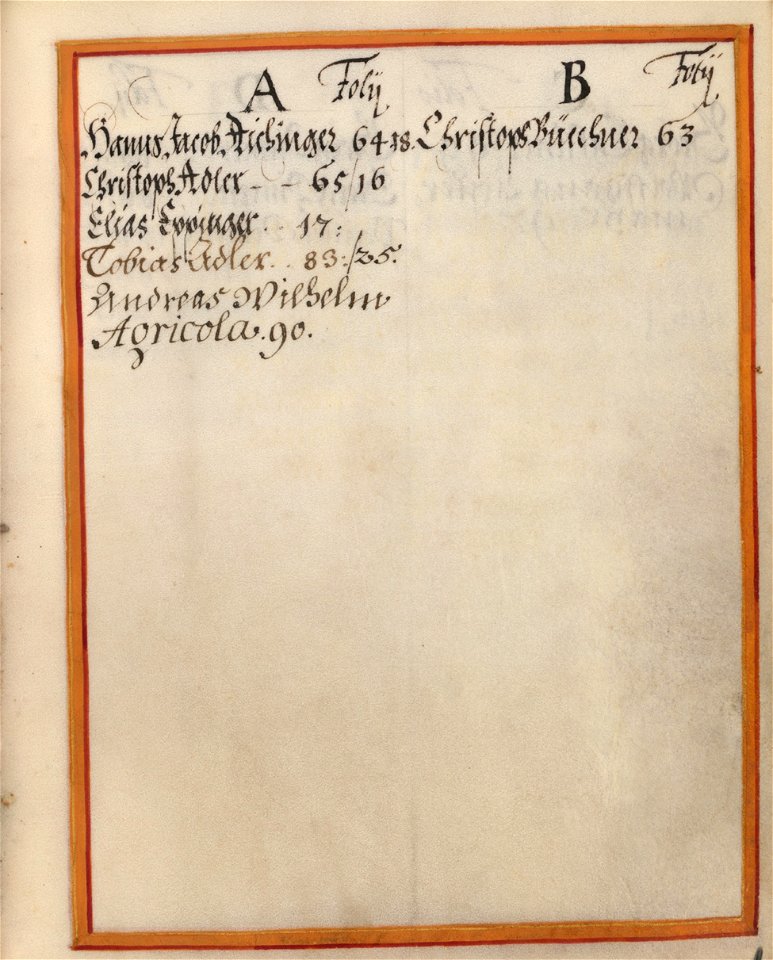 A Folij
Hanns Jacob Aichinger 64 18.
Christoph Adler - - 65/16
Elias Eppinger . . 17:
Tobias Adler . . 83:/25.
Andreas Wilhelm
Agricola. 90.
B Folij
Christoph Büechner 63